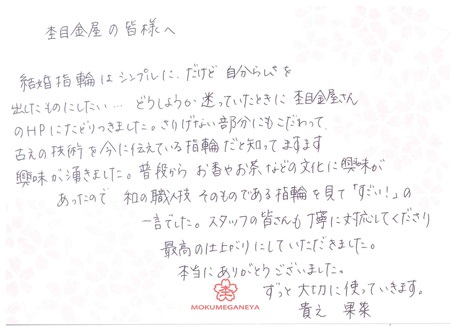 杢目金屋の皆様へ
結婚指輪はシンプルに、だけど自分らしさを
出したものにしたい… どうしようか迷っていたときに 杢目金屋さん
のHPにたどりつきました。さりげない部分にもこだわって、
古えの技術を今に伝えている指輪だと知ってますます
興味が湧きました。普段から お香やお茶などの文化に興味が
あったので 和の職人技そのものである指輪を見て「すごい！」の
一言でした。スタッフの皆さんも丁寧に対応してくださり
最高の仕上がりにしていただきました。
本当にありがとうございました。
ずっと大切に使っていきます。
貴之 果菜
MOKUMEGANEYA